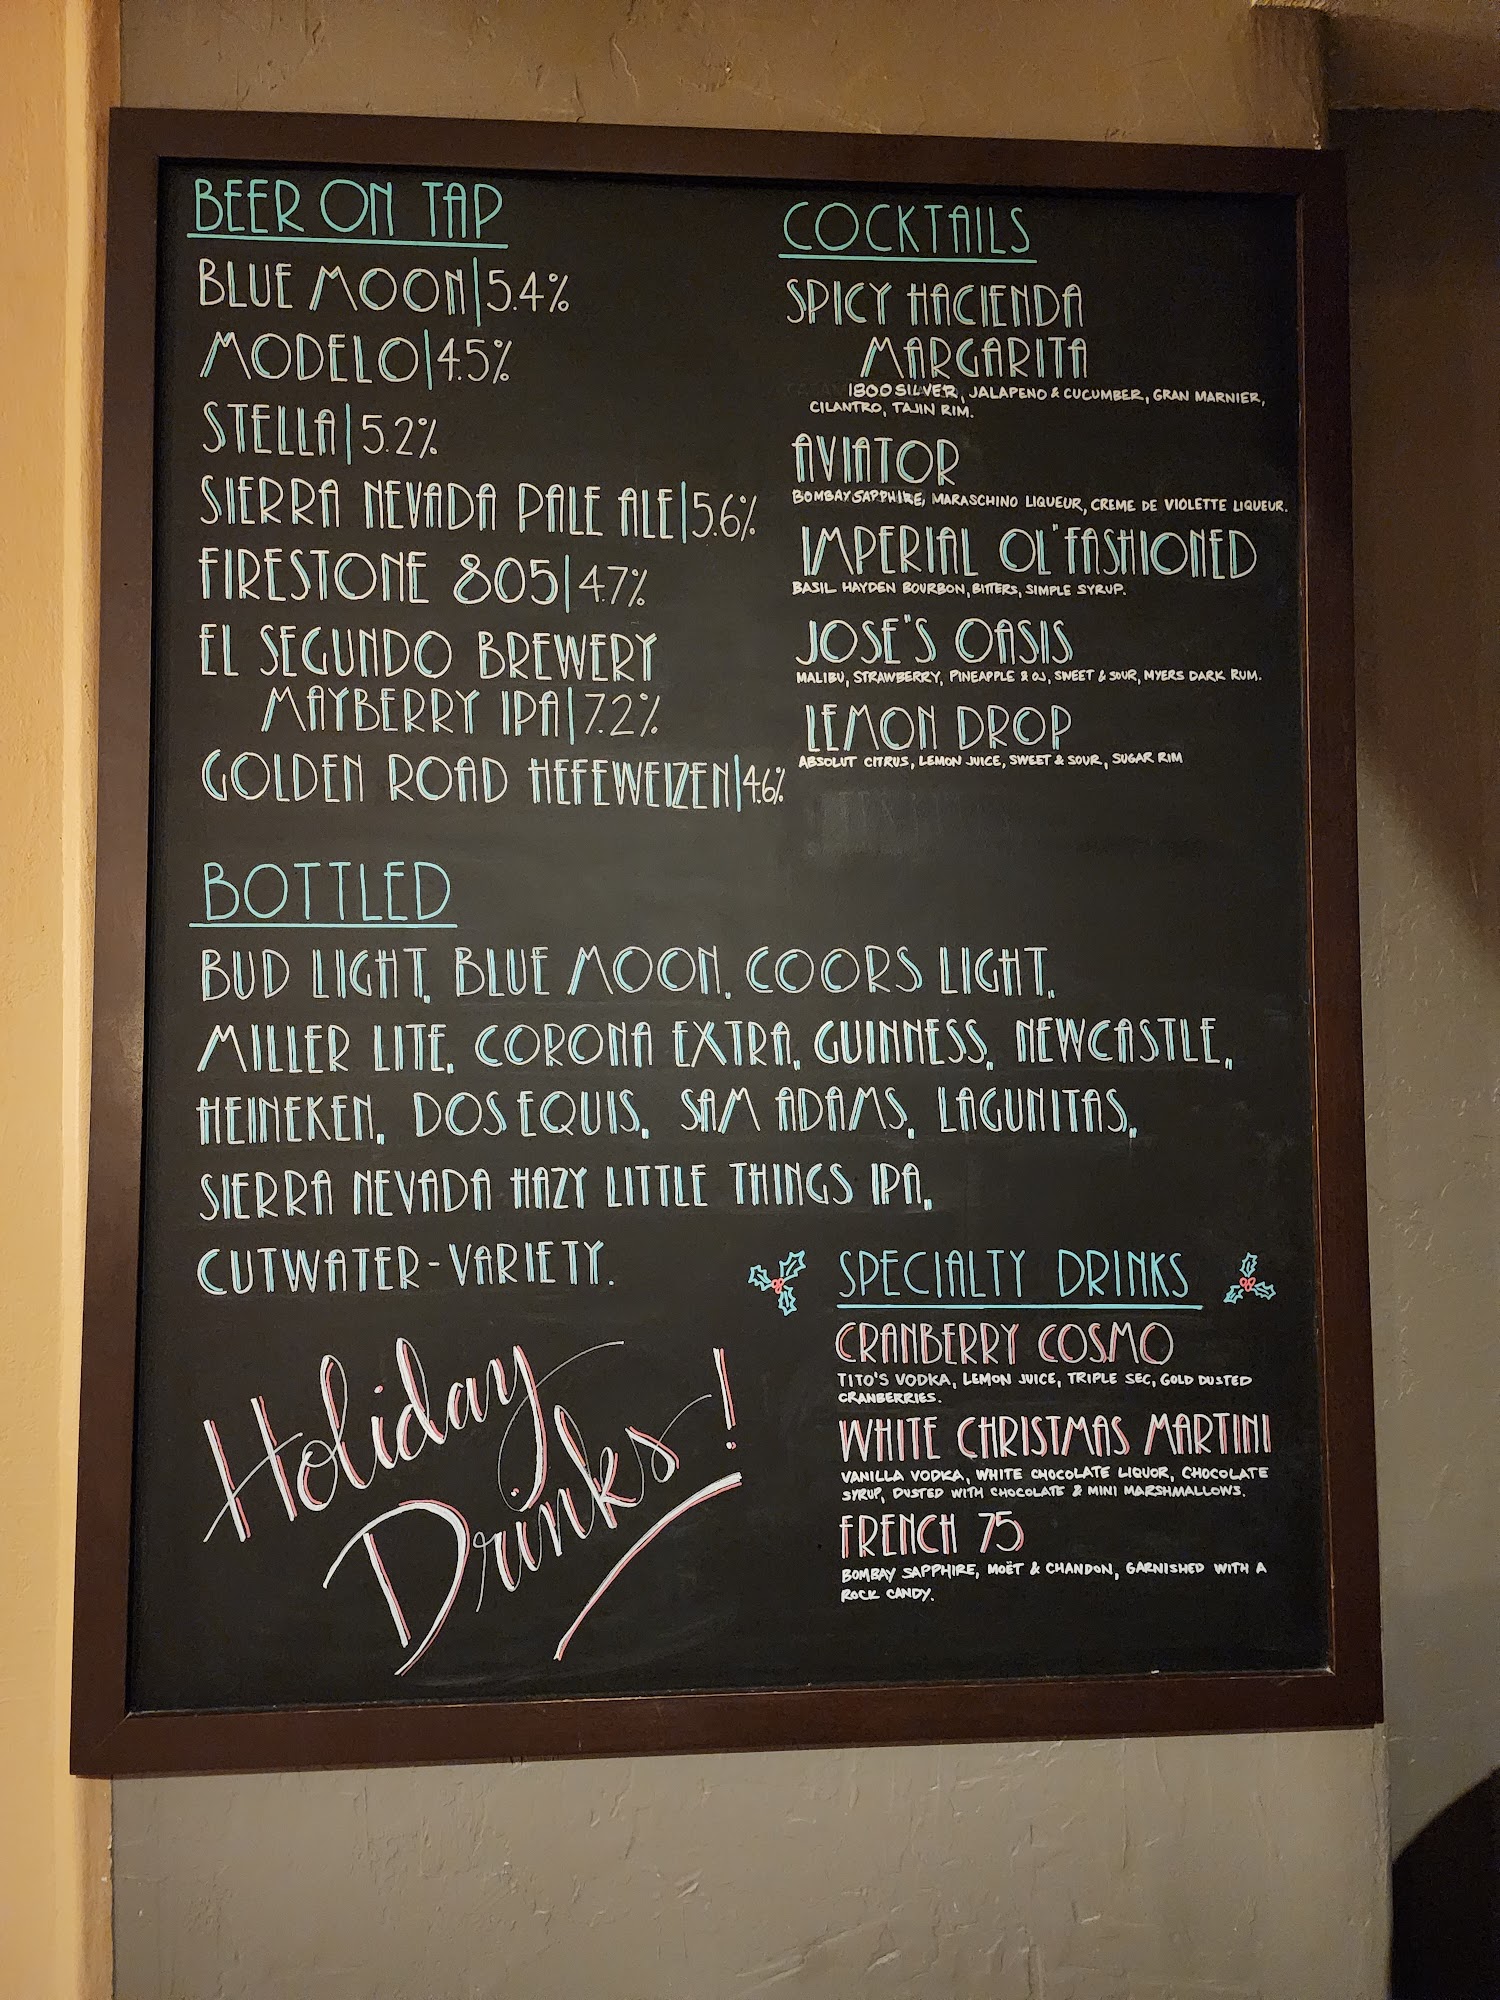 BEER ON TAP
BLUE MOON|5.4%
MODELO|4.5%
STELLA|5.2%
SIERRA NEVADA PALE ALE|5.6%
FIRESTONE 805|4.7%
EL SEGUNDO BREWERY
MAYBERRY IPA|7.2%
GOLDEN ROAD HEFEWEIZEN|4.6%
COCKTAILS
SPICY HACIENDA
MARGARITA
1800 SILVER, JALAPENO & CUCUMBER, GRAN MARNIER,
CILANTRO, TAJIN RIM.
AVIATOR
BOMBAY SAPPHIRE, MARASCHINO LIQUEUR, CREME DE VIOLETTE LIQUEUR.
IMPERIAL OL"FASHIONED
BASIL HAYDEN BOURBON, BITTERS, SIMPLE SYRUP.
JOSE"S OASIS
MALIBU, STRAWBERRY, PINEAPPLE & OJ, SWEET & SOUR, MYERS DARK RUM.
LEMON DROP
ABSOLUT CITRUS, LEMON JUICE, SWEET & SOUR, SUGAR RIM
BOTTLED
BUD LIGHT, BLUE MOON, COORS LIGHT,
MILLER LITE, CORONA EXTRA, GUINNESS, NEWCASTLE,
HEINEKEN, DOS EQUIS, SAM ADAMS, LAGUNITAS,
SIERRA NEVADA HAZY LITTLE THINGS IPA,
CUTWATER-VARIETY.
Holiday
Drinks!
SPECIALTY DRINKS
CRANBERRY COSMO
TITO'S VODKA, LEMON JUICE, TRIPLE SEC, GOLD DUSTED
CRANBERRIES.
WHITE CHRISTMAS MARTINI
VANILLA VODKA, WHITE CHOCOLATE LIQUOR, CHOCOLATE
SYRUP, DUSTED WITH CHOCOLATE & MINI MARSHMALLOWS.
FRENCH 75
BOMBAY SAPPHIRE, MOËT & CHANDON, GARNISHED WITH A
ROCK CANDY.